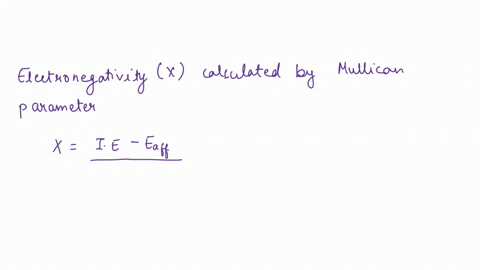 Electronegativity (X) calculated by Mullican
parameter
X = I.E - Eaff